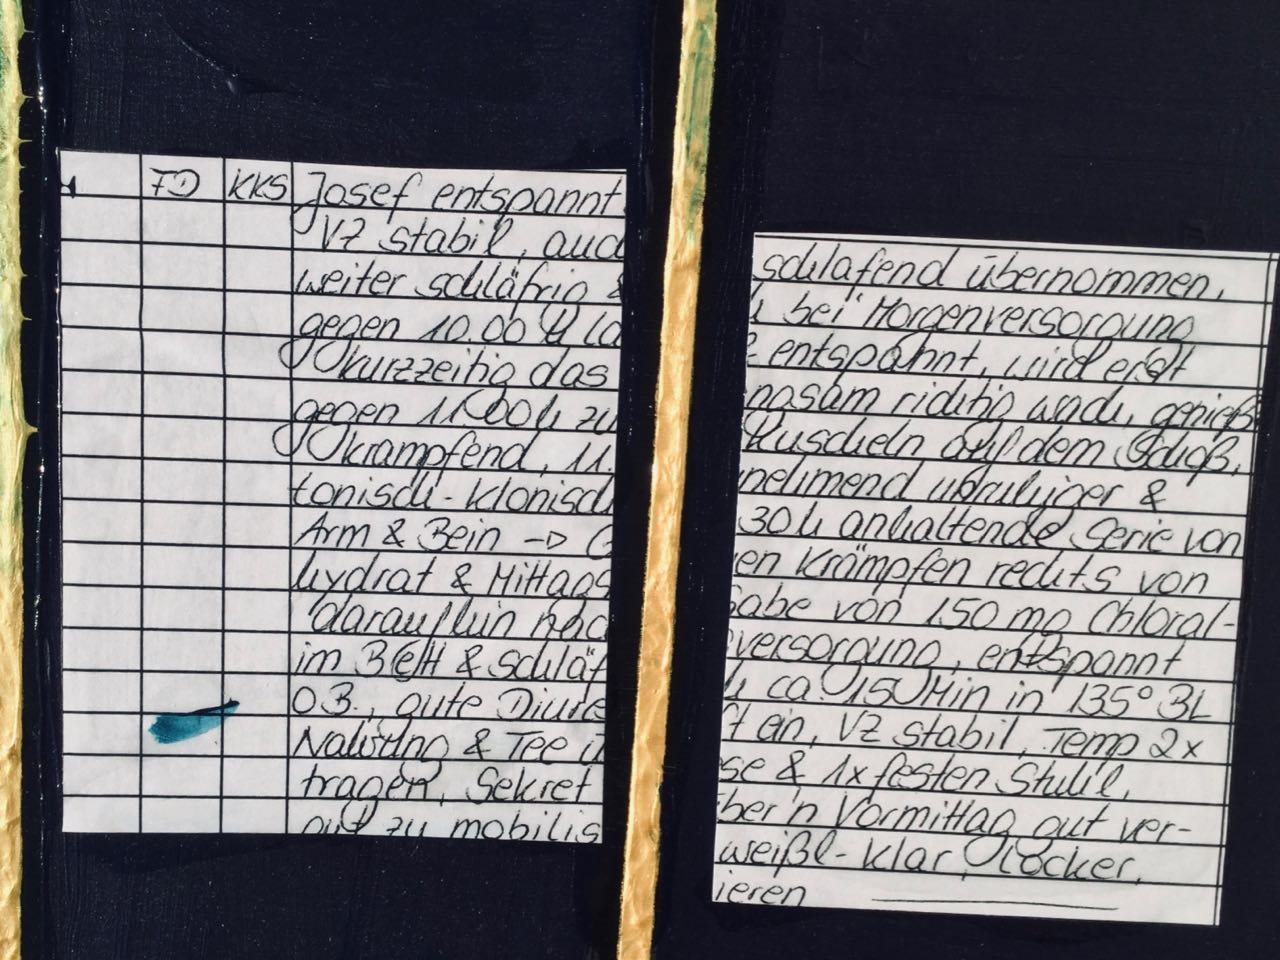 FD KKS Josef entspannt
VZ stabil, auc
weiter schläfrig &
gegen 10.00 h la
kurzzeitig das
gegen 11.00 h zu
krampfend, 11.
tonisch-klonisch
Arm & Bein → G
hydrat & Mittags
daraufhin nac
im B@H & schläf
O.B., gute Diure
Nahrung & Tee ü
tragen, Sekret
gut zu mobilis
schlafend übernommen,
h bei Morgenversorgung
& entspannt, wird erst
ngsam richtig wach, genieß
Kuscheln auf dem Schoß,
nehmend unruhiger &
30 h anhaltende Serie von
en Krämpfen rechts von
Gabe von 150 mg Chloral-
versorgung, entspannt
h ca. 150 Min in 135° BL
ft ein, VZ stabil, Temp 2x
se & 1x festen Stuhl,
ber'n Vormittag gut ver-
weißl-klar, locker,
ieren